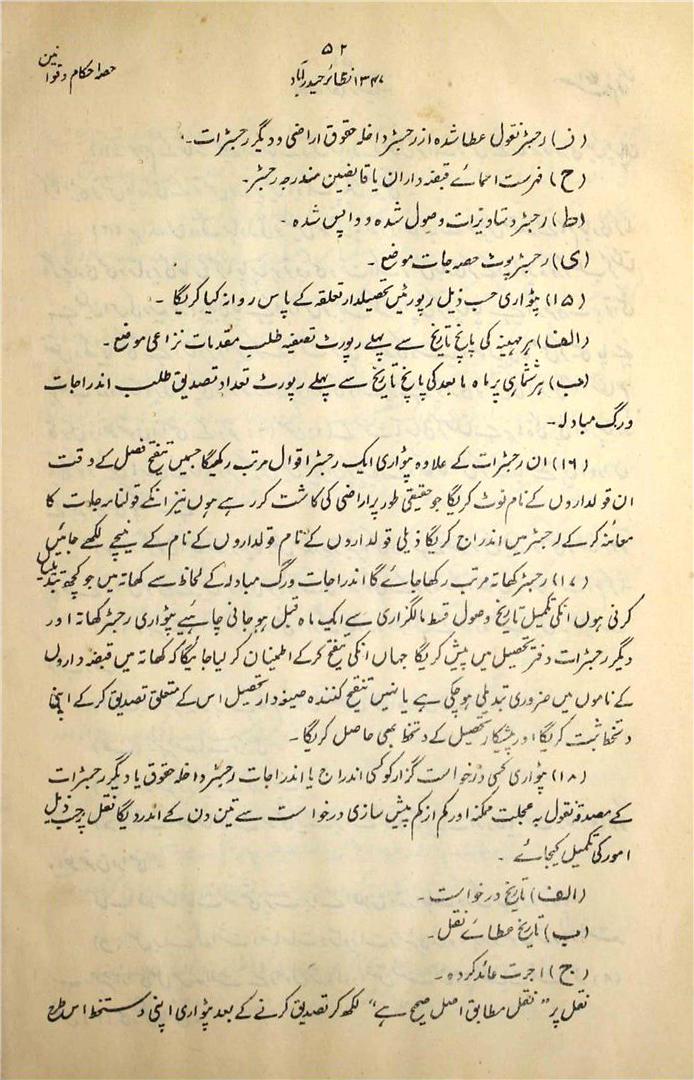 ۵۲
۱۳۴۷ نظائر حیدرآباد
حصہ احکام و قوانین
(ز) رجسٹر نقول عطا شدہ از رجسٹر داخلہ حقوق اراضی و دیگر رجسٹرات۔
(ح) فہرست اسمائے قبضہ داران یا قابضین مندرجہ رجسٹر۔
(ط) رجسٹر دستاویزات وصول شدہ و واپس شدہ ۔
(ی) رجسٹر پوٹ حصہ جات موضع ۔
(۱۵) پٹواری حسب ذیل رپورٹیں تحصیلدار تعلقہ کے پاس روانہ کیا کریگا ۔
(الف) ہر مہینہ کی پانچ تاریخ سے پہلے رپورٹ تصفیہ طلب مقدمات نزاعی موضع ۔
(ب) ہر ششماہی پر ماہ مابعد کی پانچ تاریخ سے پہلے رپورٹ تعداد تصدیق طلب اندراجات
ورگ مبادلہ ۔
(۱۶) ان رجسٹرات کے علاوہ پٹواری ایک رجسٹر اقوال مرتب رکھیگا جسمیں تنقیح فصل کے وقت
ان قولداروں کے نام نوٹ کریگا جو حقیقی طور پر اراضی کی کاشت کر رہے ہوں نیز انکے قولنامہ جات کا
معائنہ کر کے رجسٹر میں اندراج کریگا ذیلی قولداروں کے نام قولداروں کے نام کے نیچے لکھے جائیں
(۱۷) رجسٹر کھاتہ مرتب رکھا جائے گا اندراجات ورگ مبادلہ کے لحاظ سے کھاتہ میں جو کچھ تبدیلیاں
کرنی ہوں انکی تکمیل تاریخ وصول قسط مالگزاری سے ایک ماہ قبل ہو جانی چاہئیے پٹواری رجسٹر کھاتہ اور
دیگر رجسٹرات دفتر تحصیل میں پیش کریگا جہاں انکی تنقیح کر کے اطمینان کر لیا جائیگا کہ کھاتہ میں قبضہ داروں
کے ناموں میں ضروری تبدیلی ہو چکی ہے یا نہیں تنقیح کنندہ صیغہ دار تحصیل اس کے متعلق تصدیق کر کے اپنی
دستخط ثبت کریگا اور پیشکار تحصیل کے دستخط بھی حاصل کریگا ۔
(۱۸) پٹواری کسی درخواست گزار کو کسی اندراج یا اندراجات رجسٹر داخلہ حقوق یا دیگر رجسٹرات
کے مصدقہ نقول بہ عجلت ممکنہ اور کم از کم پیش سازی درخواست سے تین دن کے اندر دیگا نقل پر حسب ذیل
امور کی تکمیل کیجائے ۔
(الف) تاریخ درخواست ۔
(ب) تاریخ عطائے نقل ۔
(ج) اجرت عائد کردہ ۔
نقل پر "نقل مطابق اصل صحیح ہے" لکھ کر تصدیق کرنے کے بعد پٹواری اپنی دستخط اس طرح